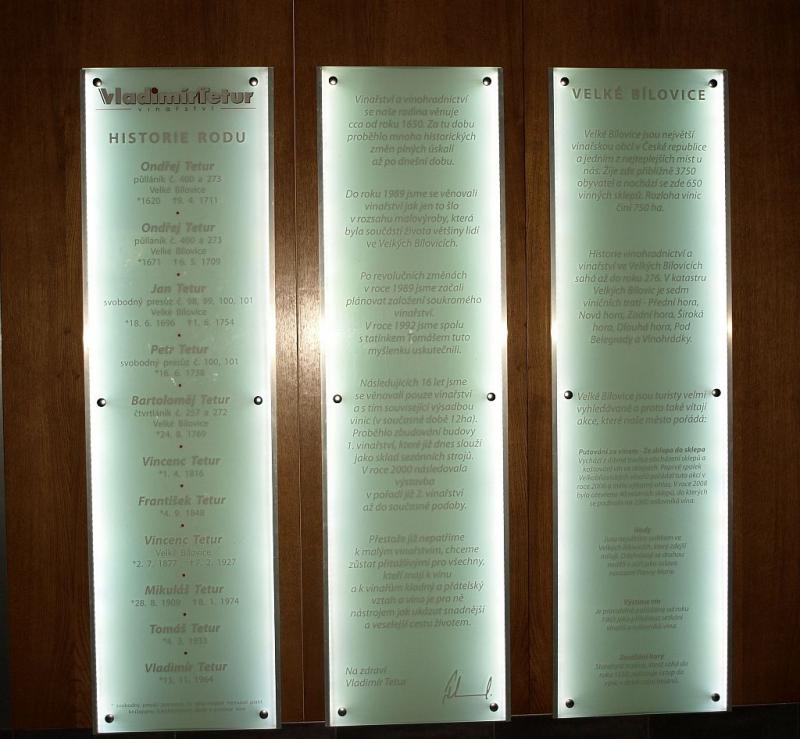 VladimírTetur
vinařství
HISTORIE RODU
Ondřej Tetur
půlláník č. 400 a 273
Velké Bílovice
*1620 †9. 4. 1711
Ondřej Tetur
půlláník č. 400 a 273
Velké Bílovice
*1671 †6. 5. 1709
Jan Tetur
svobodný presúz č. 98, 99, 100, 101
Velké Bílovice
*18. 6. 1696 †1. 6. 1754
Petr Tetur
svobodný presúz č. 100, 101
*16. 6. 1738
Bartoloměj Tetur
čtvrtláník č. 257 a 272
Velké Bílovice
*24. 8. 1769
Vincenc Tetur
*1. 4. 1816
František Tetur
*4. 9. 1848
Vincenc Tetur
Velké Bílovice
*2. 7. 1877 †7. 2. 1927
Mikuláš Tetur
*28. 8. 1909 †8. 1. 1974
Tomáš Tetur
*4. 3. 1933
Vladimír Tetur
*13. 11. 1964
* svobodný presúz
Vinařství a vinohradnictví
se naše rodina věnuje
cca od roku 1650. Za tu dobu
proběhlo mnoha historických
změn plných úskalí
až po dnešní dobu.
Do roku 1989 jsme se věnovali
vinařství jak jen to šlo
v rozsahu malovýroby, která
byla součástí života většiny lidí
ve Velkých Bílovicích.
Po revolučních změnách
v roce 1989 jsme začali
plánovat založení soukromého
vinařství.
V roce 1992 jsme spolu
s tatínkem Tomášem tuto
myšlenku uskutečnili.
Následujících 16 let jsme
se věnovali pouze vinařství
a s tím související výsadbou
vinic (v současné době 12ha).
Proběhlo zbudování budovy
1. vinařství, které již dnes slouží
jako sklad sezónních strojů.
V roce 2000 následovala
výstavba
v pořadí již 2. vinařství
až do současné podoby.
Přestože již nepatříme
k malým vinařstvím, chceme
zůstat přitažlivými pro všechny,
kteří mají k vínu
a k vinařům kladný a přátelský
vztah a víno je pro ně
nástrojem jak ukázat snadnější
a veselejší cestu životem.
Na zdraví
Vladimír Tetur
VELKÉ BÍLOVICE
Velké Bílovice jsou největší
vinařskou obcí v České republice
a jedním z nejteplejších míst u
nás. Žije zde přibližně 3750
obyvatel a nachází se zde 650
vinných sklepů. Rozloha vinic
činí 750 ha.
Historie vinohradnictví a
vinařství ve Velkých Bílovicích
sahá až do roku 276. V katastru
Velkých Bílovic je sedm
viničních tratí - Přední hora,
Nová hora, Zadní hora, Široká
hora, Dlouhá hora, Pod
Belegrady a Vinohrádky.
Velké Bílovice jsou turisty velmi
vyhledávané a proto také vítají
akce, které naše město pořádá:
Putování za vínem - Ze sklepa do sklepa
Hody
Výstava vín
Zarážání hory